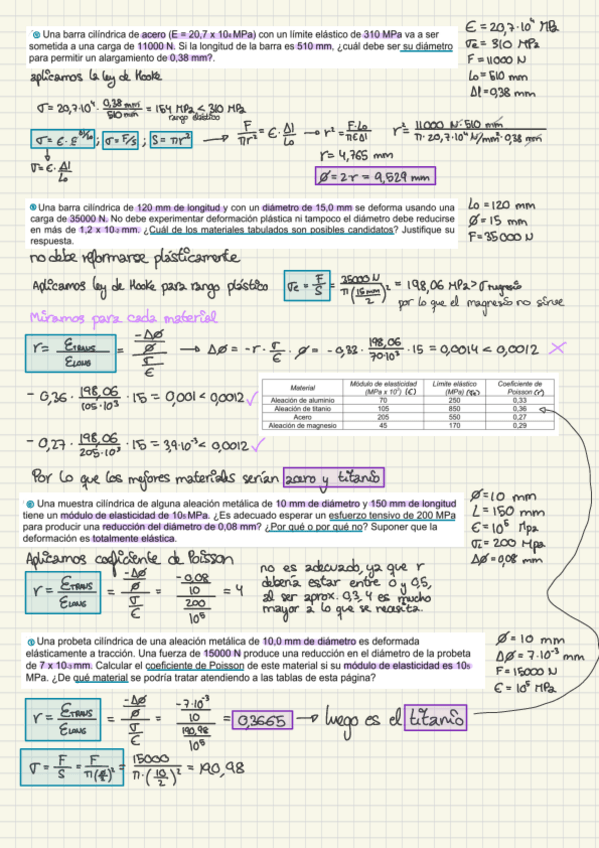 Una barra cilíndrica de acero (E = 20,7 x 10₄ MPa) con un límite elástico de 310 MPa va a ser
sometida a una carga de 11000 N. Si la longitud de la barra es 510 mm, ¿cuál debe ser su diámetro
para permitir un alargamiento de 0,38 mm?.
E = 20,7·10⁴ MPa
σe = 310 MPa
F = 11000 N
Lo = 510 mm
Δl = 0,38 mm
aplicamos la ley de Hooke
σ = 20,7·10⁴ · 0,38 mm / 510 mm = 154 MPa < 310 MPa
rango elástico
σ = F/S ; S = πr² → F/πr² = E · Δl/Lo → r² = F·Lo/πEΔl r² = 11000 N · 510 mm / π · 20,7·10⁴ N/mm² · 0,38 mm
σ = E · Δl/Lo
r = 4,765 mm
Ø = 2r = 9,529 mm
Una barra cilíndrica de 120 mm de longitud y con un diámetro de 15,0 mm se deforma usando una
carga de 35000 N. No debe experimentar deformación plástica ni tampoco el diámetro debe reducirse
en más de 1,2 x 10-3 mm. ¿Cuál de los materiales tabulados son posibles candidatos? Justifique su
respuesta.
Lo = 120 mm
Ø = 15 mm
F = 35000 N
no debe reformarse plásticamente
Aplicamos ley de Hooke para rango plástico σe = F/S = 35000 N / π(15 mm/2)² = 198,06 MPa > σ magnesio
por lo que el magnesio no sirve
Miramos para cada material
r = ETRANS / ELONG = (-ΔØ/Ø) / (σ/E) → ΔØ = -r · σ/E · Ø = -0,33 · 198,06/70·10³ · 15 = 0,0014 < 0,0012 ✗
- 0,36 · 198,06/105·10³ · 15 = 0,001 < 0,0012 ✓
- 0,27 · 198,06/205·10³ · 15 = 3,9·10⁻³ < 0,0012 ✓
Material Módulo de elasticidad (MPa x 10³) (E) Límite elástico (MPa) (σe) Coeficiente de Poisson (r)
Aleación de aluminio 70 250 0,33
Aleación de titanio 105 850 0,36
Acero 205 550 0,27
Aleación de magnesio 45 170 0,29
Por lo que los mejores materiales serían acero y titanio
Una muestra cilíndrica de alguna aleación metálica de 10 mm de diámetro y 150 mm de longitud
tiene un módulo de elasticidad de 10₅ MPa. ¿Es adecuado esperar un esfuerzo tensivo de 200 MPa
para producir una reducción del diámetro de 0,08 mm? ¿Por qué o por qué no? Suponer que la
deformación es totalmente elástica.
Ø = 10 mm
L = 150 mm
E = 10⁵ Mpa
σ = 200 MPa
ΔØ = 0,08 mm
Aplicamos coeficiente de Poisson
r = ETRANS / ELONG = (-ΔØ/Ø) / (σ/E) = (-0,08/10) / (200/10⁵) = 4
no es adecuado, ya que r
debería estar entre 0 y 0,5,
al ser aprox. 0,3, 4 es mucho
mayor a lo que se necesita.
Una probeta cilíndrica de una aleación metálica de 10,0 mm de diámetro es deformada
elásticamente a tracción. Una fuerza de 15000 N produce una reducción en el diámetro de la probeta
de 7 x 10-3 mm. Calcular el coeficiente de Poisson de este material si su módulo de elasticidad es 10₅
MPa. ¿De qué material se podría tratar atendiendo a las tablas de esta página?
Ø = 10 mm
ΔØ = 7·10⁻³ mm
F = 15000 N
E = 10⁵ MPa
r = ETRANS / ELONG = (-ΔØ/Ø) / (σ/E) = (-7·10⁻³/10) / (190,98/10⁵) = 0,3665 → luego es el titanio
σ = F/S = 15000 / π·(10/2)² = 190,98